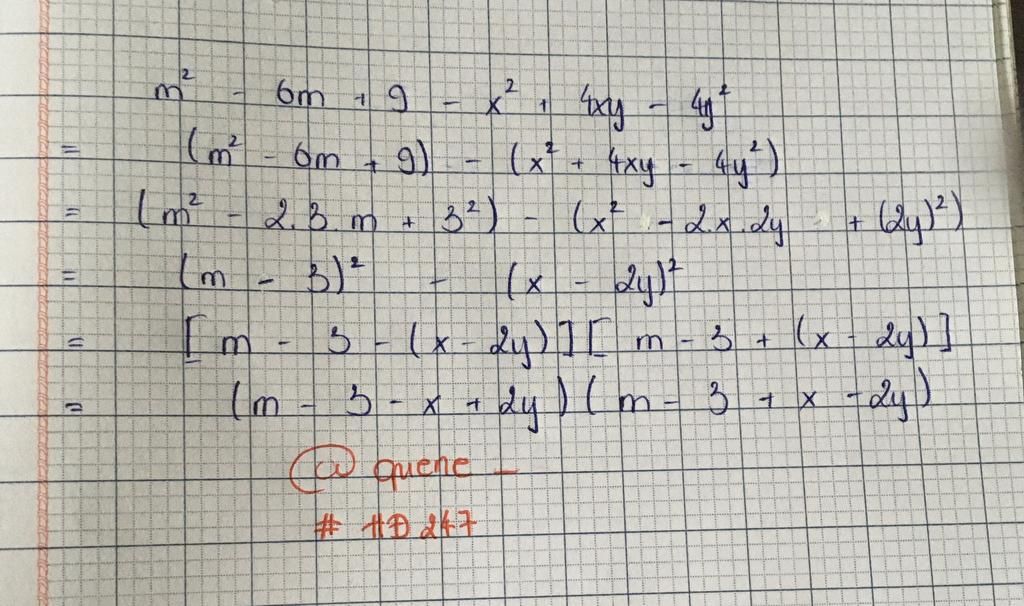 m² - 6m + 9 - x² + 4xy - 4y²
= (m² - 6m + 9) - (x² + 4xy - 4y²)
= (m² - 2.3.m + 3²) - (x² - 2.x.2y + (2y)²)
= (m - 3)² - (x - 2y)²
= [m - 3 - (x - 2y)][m - 3 + (x - 2y)]
= (m - 3 - x + 2y)(m - 3 + x - 2y)
@ quene _
# HD 247